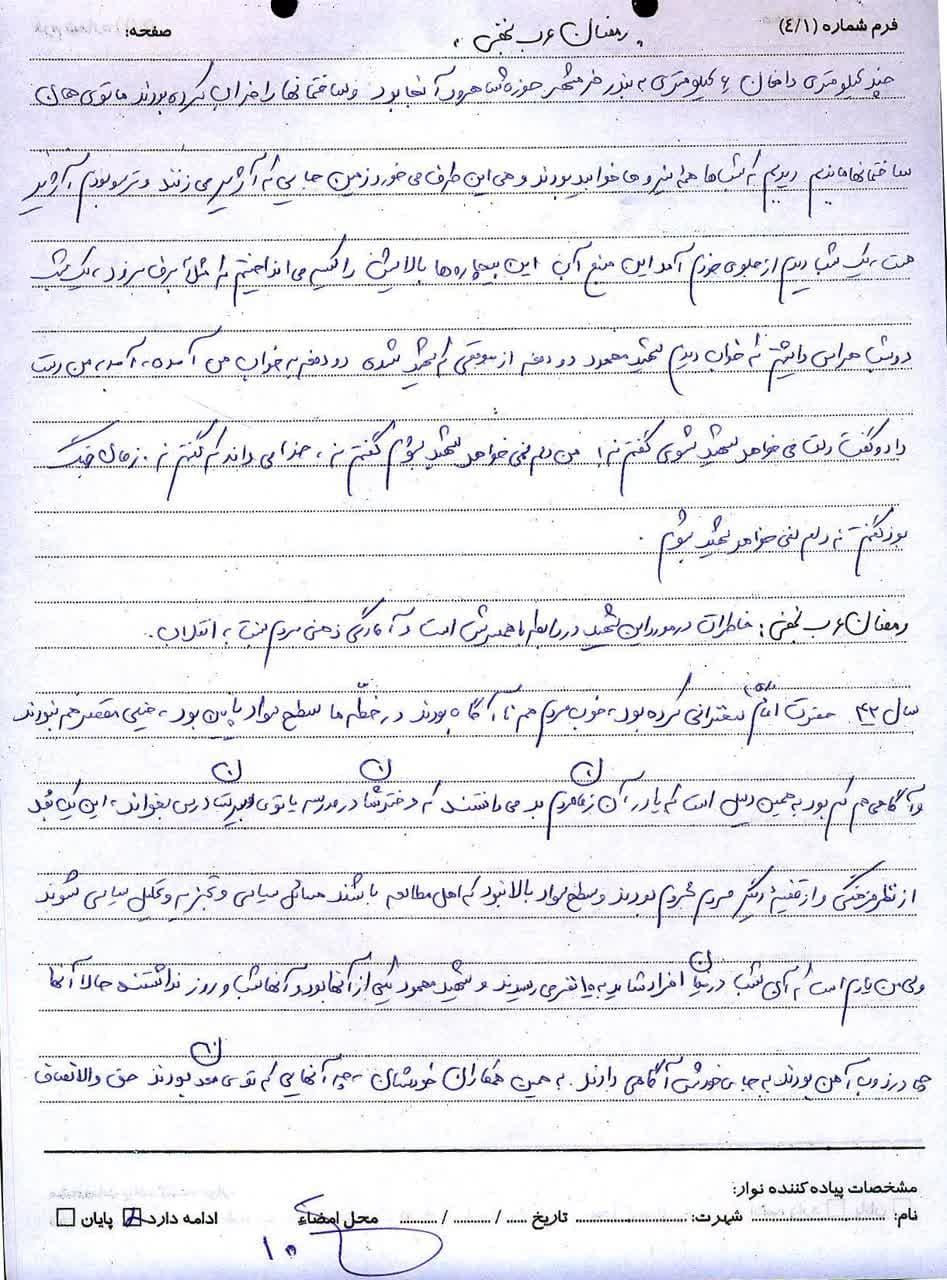 فرم شماره (۴/۱)
رمضان عرب نجفی
صفحه:
چند کیلومتری دامغان ۶ کیلومتری به بندر خرمشهر حوزه شاهرود آنجا بود و ساختمانها را خراب کرده بودند ما توی همان
ساختمانها ماندیم دیدیم که شبها همه نیروها خوابیده بودند و هی این طرف می خورد زمین جایی که آژیر می زنند و ترسو بودم آژیر
یک شب دیدم از جلوی خودم آمد این منبع آب این بیچاره ها بالایش را که می انداختیم که مثلا برف میزد، یک شب
دو شب هراس داشتم که خواب دیدم شهید محمود دو دفعه از موقعی که شهید شده دو دفعه به خواب من آمده، آمد، من دست
داد و گفت دلت می خواهد شهید شوی گفتم نه! من دلم نمی خواهد شهید بشوم گفتم نه، خدا می داند که گفتم نه. زمان جنگ
بود گفتم نه دلم نمی خواهد شهید بشوم.
رمضان عرب نجفی: خاطرات در مورد این شهید در رابطه با همسرش است و آمادگی ذهنی مردم نسبت به انقلاب.
سال ۴۲ حضرت امام سخنرانی کرده بود، خوب مردم هم ناآگاه بودند در خطّه ما سطح سواد پایین بود، خیلی مقصر هم نبودند
و آگاهی هم کم بود به همین دلیل است که یا در آن زمان مردم بد می دانستند که دخترشان در مدرسه یا توی دبیرستان درس بخواند، این یک بُعد
از نظر فرهنگی و از قضیه دیگر مردم محروم بودند و سطح سواد بالا نبود که اهل مطالعه باشند مسائل سیاسی و تجزیه و تحلیل سیاسی شوند
ولی من یادم است که آن شب در میان افراد شاید به ۱۰ نفر می رسیدند و شهید محمود یکی از آنها بود و آنها شب و روز نداشتند حالا آنها
چی در ذوب آهن بودند به جای خودش آگاهی دادند. به همین همکاران خودشان، چه آنهایی که توی معدن بودند حق والانصاف
مشخصات پیاده کننده نوار:
نام: شهرت: تاریخ ..... / ..... / ..... محل امضاء ادامه دارد پایان
۱۰